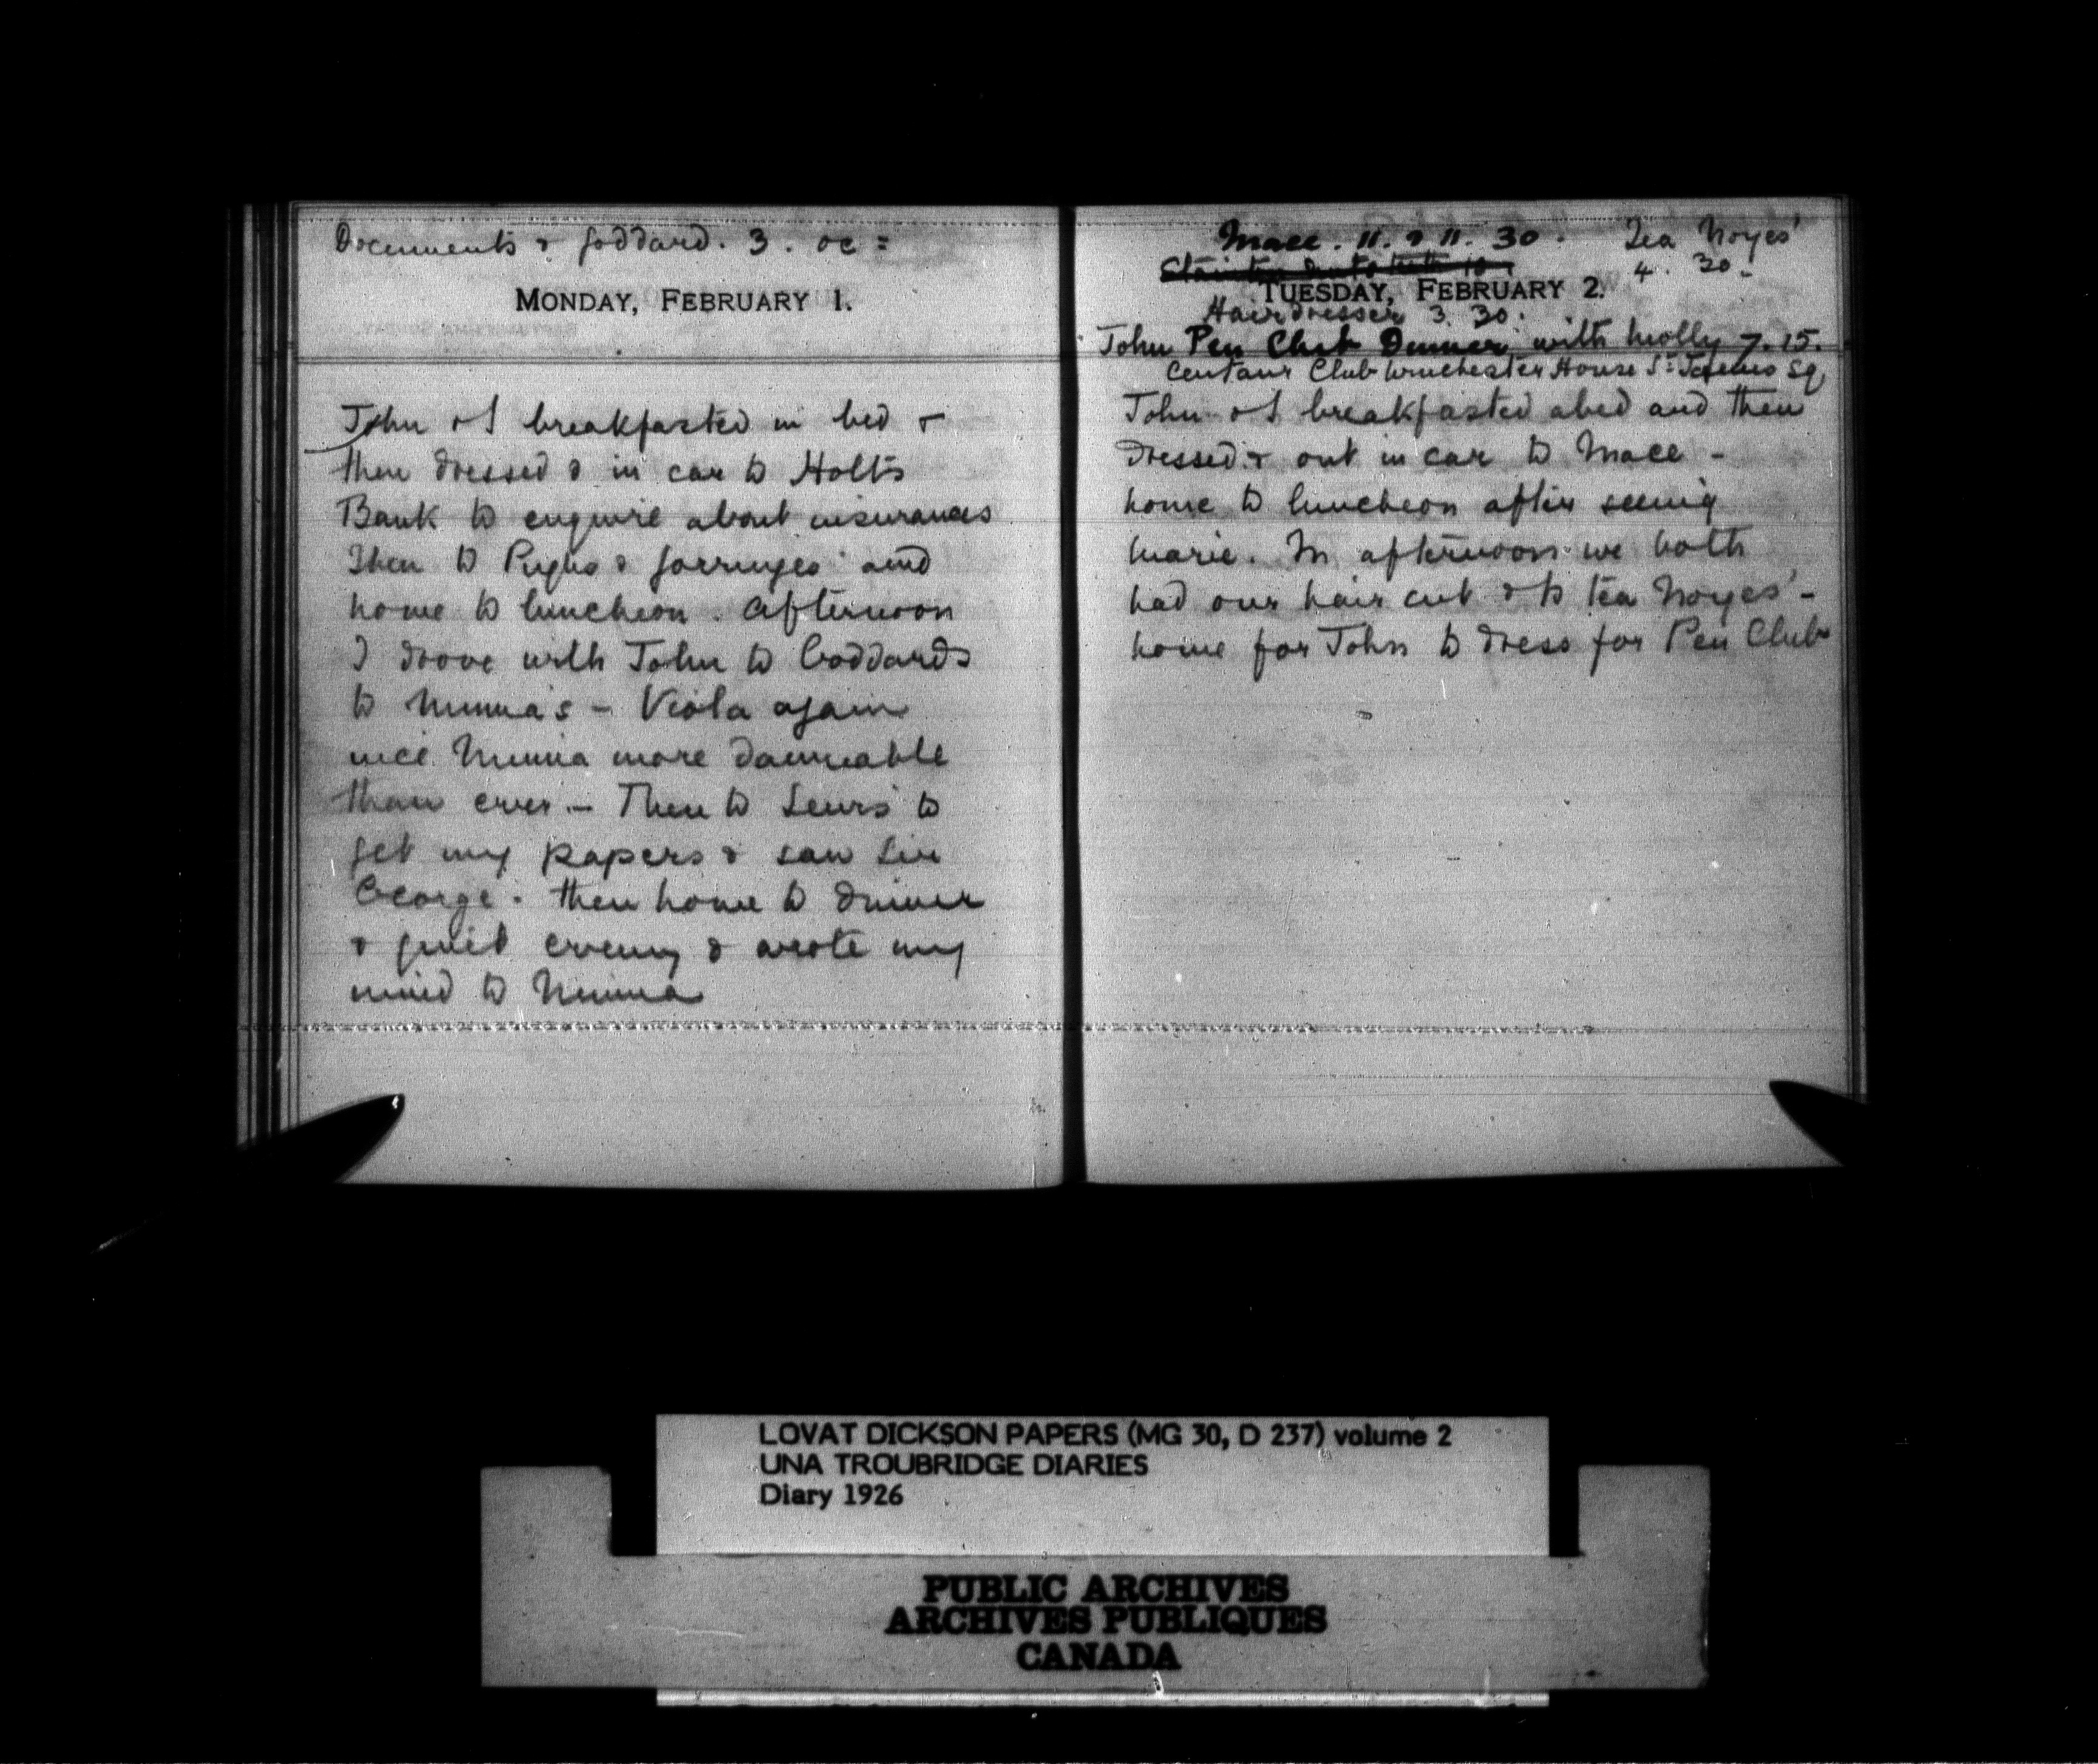 Documents & Goddard. 3. oc =
MONDAY, FEBRUARY 1.
John & I breakfasted in bed &
then dressed & in car to Holts
Bank to enquire about insurances
Then to Pughs & Gorringes and
home to luncheon. Afternoon
I drove with John to Goddards
to Minna's – Viola again
nice Minna more damnable
than ever – Then to Lewis to
get my papers & saw Sir
George. then home to dinner
& quiet evening & wrote my
mind to Minna
Mace. 11. & 11. 30. Tea Noyes'
4. 30.
TUESDAY, FEBRUARY 2.
Hairdresser 3. 30.
John Pen Club Dinner with Molly 7.15.
Centaur Club Winchester House St James Sq
John & I breakfasted abed and then
dressed & out in car to Mace –
home to luncheon after seeing
Marie. In afternoon we both
had our hair cut & to tea Noyes' –
home for John to dress for Pen Club
LOVAT DICKSON PAPERS (MG 30, D 237) volume 2
UNA TROUBRIDGE DIARIES
Diary 1926
PUBLIC ARCHIVES
ARCHIVES PUBLIQUES
CANADA